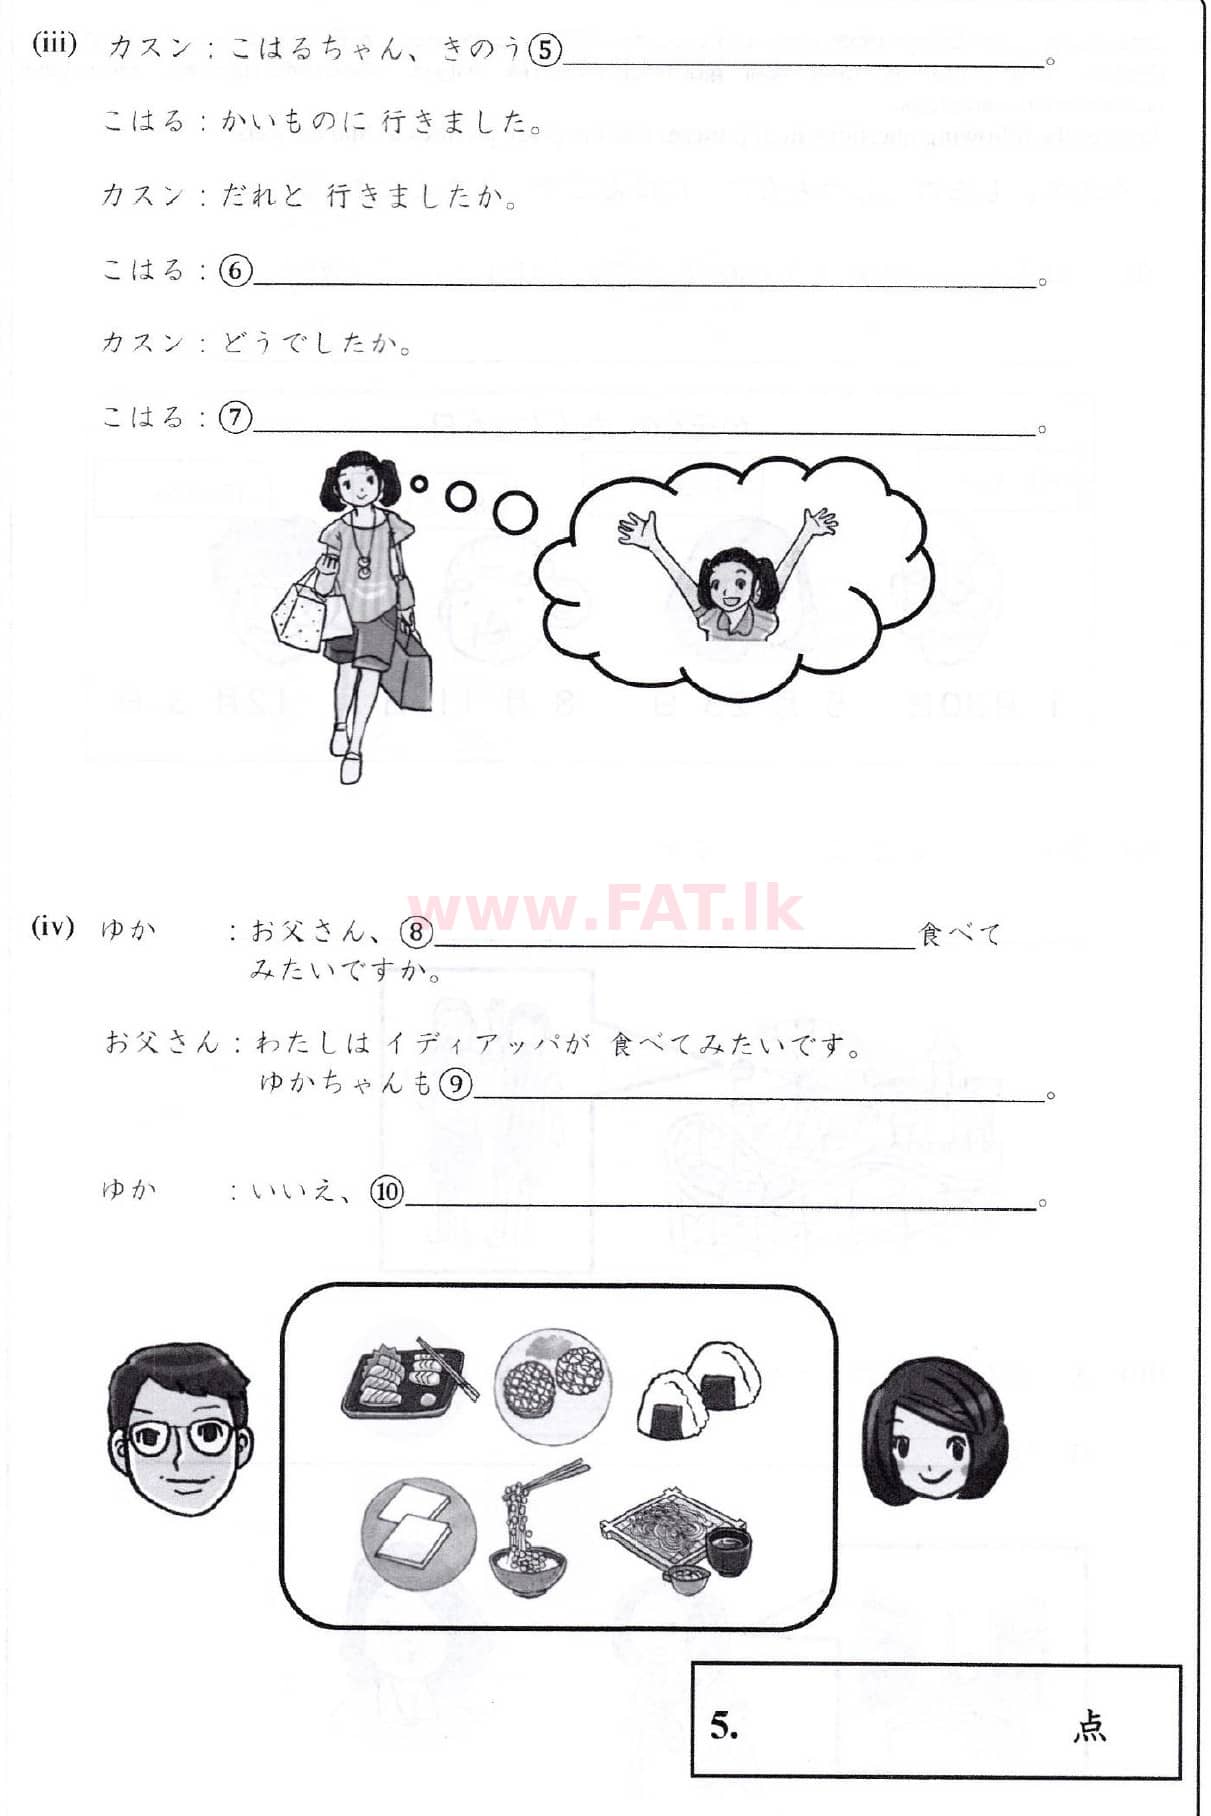 (iii) カスン：こはるちゃん、きのう⑤＿＿＿＿＿＿＿＿＿＿。
こはる：かいものに 行きました。
カスン：だれと 行きましたか。
こはる：⑥＿＿＿＿＿＿＿＿＿＿。
カスン：どうでしたか。
こはる：⑦＿＿＿＿＿＿＿＿＿＿。
www.FAT.lk
(iv) ゆか ：お父さん、⑧＿＿＿＿＿＿＿＿食べて
みたいですか。
お父さん：わたしは イディアッパが 食べてみたいです。
ゆかちゃんも⑨＿＿＿＿＿＿＿＿＿＿。
ゆか ：いいえ、⑩＿＿＿＿＿＿＿＿＿＿。
5. 点